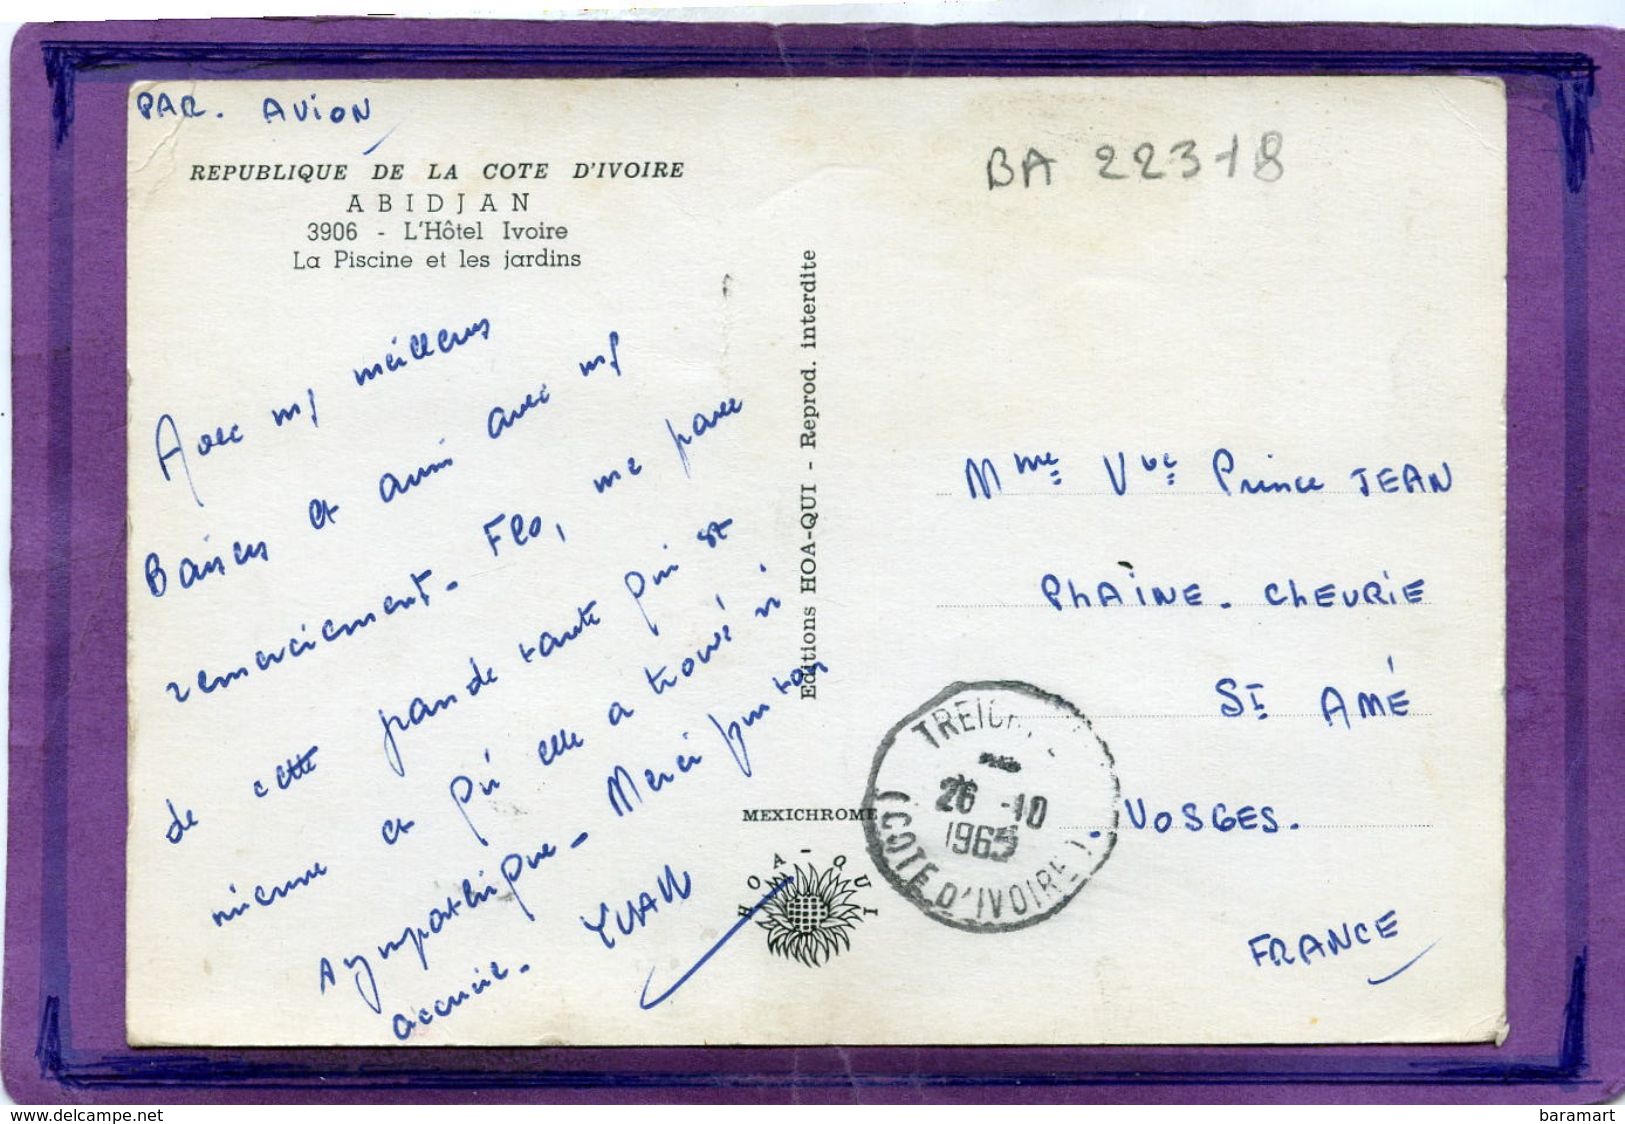 PAR. AVION
REPUBLIQUE DE LA COTE D'IVOIRE
ABIDJAN
3906 - L'Hôtel Ivoire
La Piscine et les jardins
Avec mes meilleurs
Baisers et aussi avec mes
remerciement. Flo, me parle
de cette grande tante qui est
mienne et qu'elle a trouvé si
sympathique. Merci pour ton
accueil. YVAN
Editions HOA-QUI - Reprod. interdite
MEXICHROME
HOA-QUI
BA 22318
Mme Vve Prince JEAN
PHAÎNE. CHEVRIE
St AMÉ
. VOSGES.
FRANCE
26 -10
1965
(COTE D'IVOIRE)
www.delcampe.net
baramart